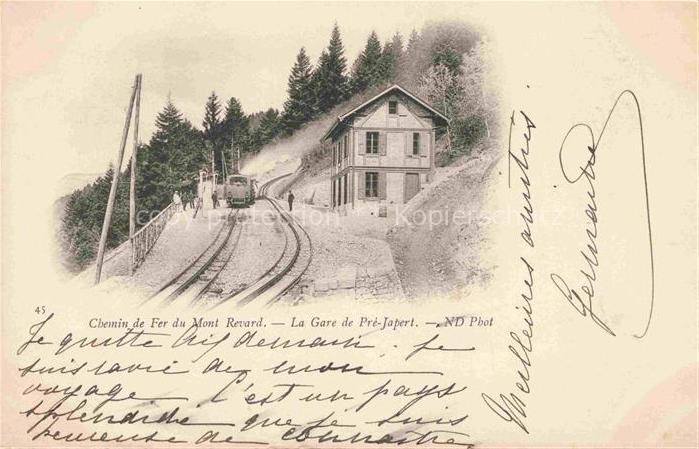 45
Chemin de Fer du Mont Revard. — La Gare de Pré-Japert. — ND Phot
Je quitte Aix demain. Je
suis ravie de mon
voyage. C'est un pays
splendide que je suis
heureuse de connaître.
Meilleures amitiés.
Germaine
Copyright
Kopierschutz